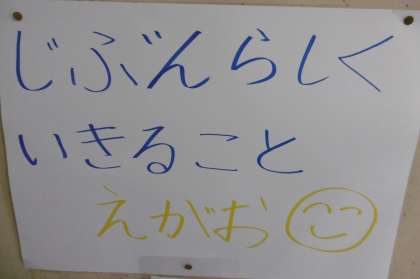 じぶんらしく
いきること
えがお